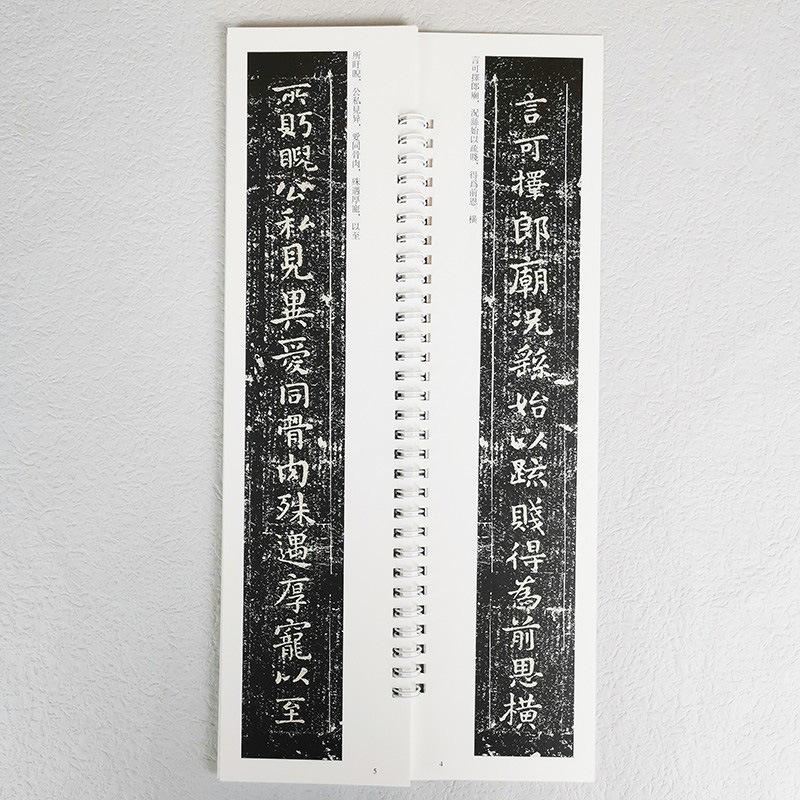 言可擇郎廟況繇始以疏賤得為前恩橫
言可擇郎廟，況繇始以疏賤，得爲前恩，橫
4
所盱睨，公私見异，愛同骨肉，殊遇厚寵，以至
所盱睨公私見異愛同骨肉殊遇厚寵以至
5